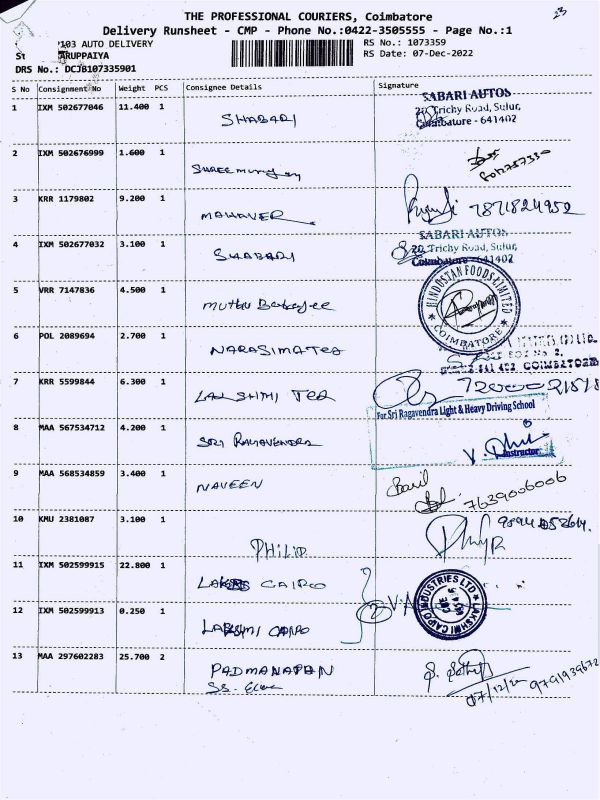 23
THE PROFESSIONAL COURIERS, Coimbatore
Delivery Runsheet - CMP - Phone No.:0422-3505555 - Page No.:1
103 AUTO DELIVERY
RS No.: 1073359
St ARUPPAIYA
RS Date: 07-Dec-2022
DRS No.: DCJB107335901
S No Consignment No Weight PCS Consignee Details Signature
1 IXM 502677046 11.400 1 SHABARI
SABARI AUTOS
Trichy Road, Sulur,
Coimbatore - 641402
2 IXM 502676999 1.600 1
3 KRR 1179802 9.200 1 MAHAVER 7871824952
4 IXM 502677032 3.100 1 SHABARI
SABARI AUTOS
20, Trichy Road, Sulur,
Coimbatore - 641402
5 VRR 7147836 4.500 1 Muthu
HINDUSTAN FOODS LIMITED
COIMBATORE
6 POL 2089694 2.700 1 NARASIMA TEA
BOX No. 2,
641 402. COIMBATORE
7 KRR 5599844 6.300 1 LAKSHMI TEA
8 MAA 567534712 4.200 1 SRI RAGAVENDRA
For Sri Ragavendra Light & Heavy Driving School
Instructor
9 MAA 568534859 3.400 1 NAVEEN 7639006006
10 KMU 2381087 3.100 1 PHILIP
11 IXM 502599915 22.800 1 CAIPO
12 IXM 502599913 0.250 1 LAKSHMI CAIPO
2
LAKSHMI CAIPO INDUSTRIES LTD
13 MAA 297602283 25.700 2 PADMANABAN
07/12/22 9791939672